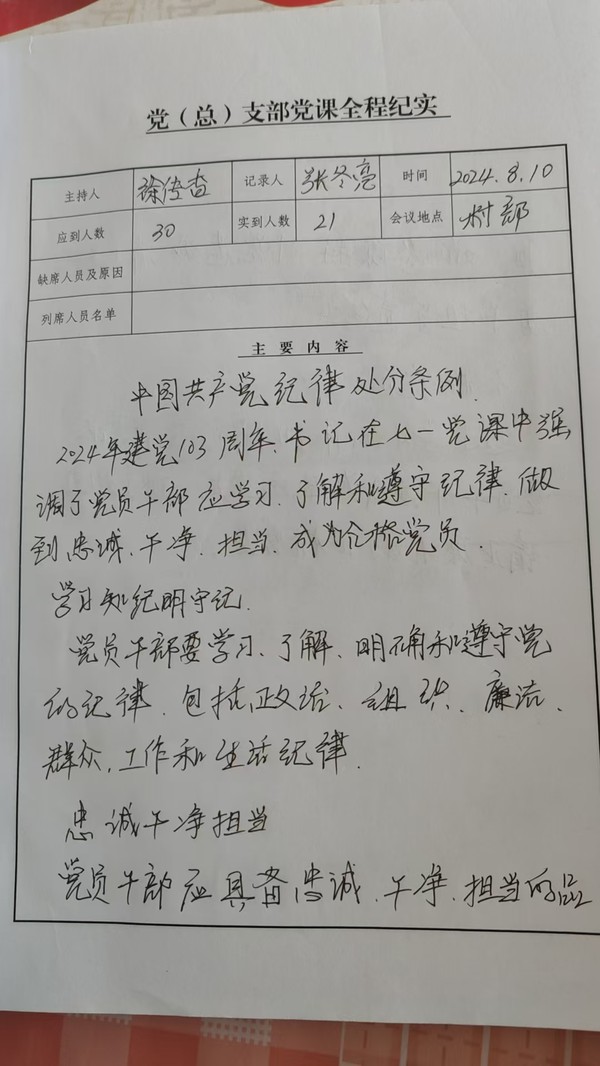 党（总）支部党课全程纪实
主持人 徐传杏 记录人 张冬亮 时间 2024.8.10
应到人数 30 实到人数 21 会议地点 村部
缺席人员及原因
列席人员名单
主要内容
中国共产党纪律处分条例.
2024年建党103周年、书记在七一党课中强
调了党员干部应学习、了解和遵守纪律、做
到忠诚、干净、担当、成为合格党员.
学习知纪明守记.
党员干部要学习、了解、明确和遵守党
的纪律、包括政治、组织、廉洁、
群众、工作和生活纪律.
忠诚干净担当
党员干部应具备忠诚、干净、担当的品